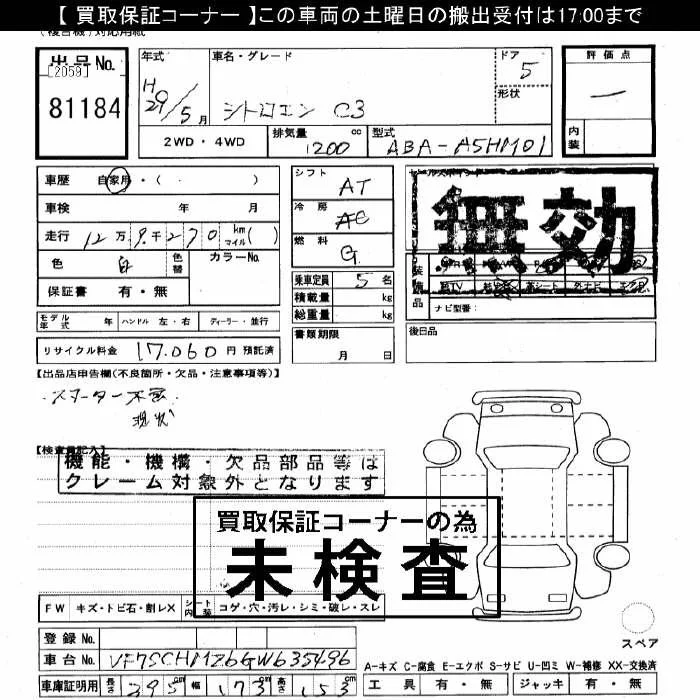 【 買取保証コーナー 】この車両の土曜日の搬出受付は17:00まで
(複合機)対応用紙
出品No.
[2059]
81184
年式
H29/5月
車名・グレード
シトロエン C3
ドア
5
形状
評価点
内装
2WD・4WD
排気量
1200
cc
型式
ABA-A5HM01
車歴 自家用・( )
車検 年 月
走行 12万9千270 kmマイル( )
色 白 色替 カラーNo.
保証書 有・無
シフト AT
冷房 AC
燃料 G
乗車定員 5名
積載量 kg
総重量 kg
書類期限
月 日
セールスポイント
無効
装備品
TV
革シート
外ナビ
エアB
ナビ型番:
後日品
モデル年式 年 ハンドル 左・右 ディーラー・並行
リサイクル料金 17,060円 預託済
【出品店申告欄(不良箇所・欠品・注意事項等)】
現状
【検査員記入】
機能・機構・欠品部品等は
クレーム対象外となります
買取保証コーナーの為
未検査
FW キズ・トビ石・割レX シート内装 コゲ・穴・汚レ・シミ・破レ・スレ
スペア
登録No.
車台No. VF7SCHMZ6GW635496
車庫証明用 長さ 295cm 幅 173cm 高さ 153cm
A-キズ C-腐食 E-エクボ S-サビ U-凹ミ W-補修 XX-交換済
工具 有・無 ジャッキ 有・無